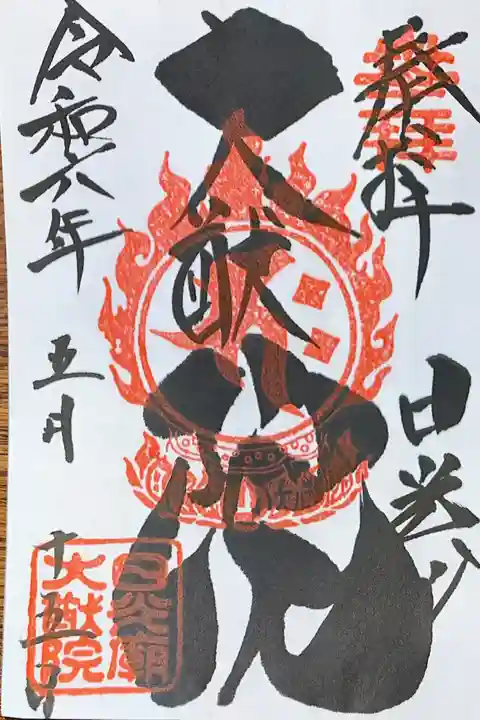 奉拝
日光山
大猷院
令和六年
五月
十五日
日光廟
大猷院